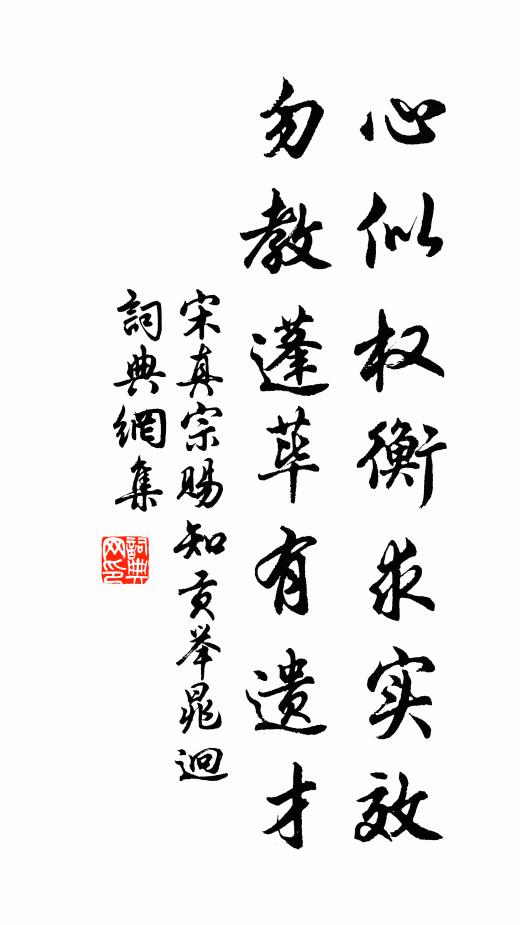 心似权衡求实效
勿教蓬荜有遗才
宋真宗賜知贡举晁迥
詞典網集
詞典网印